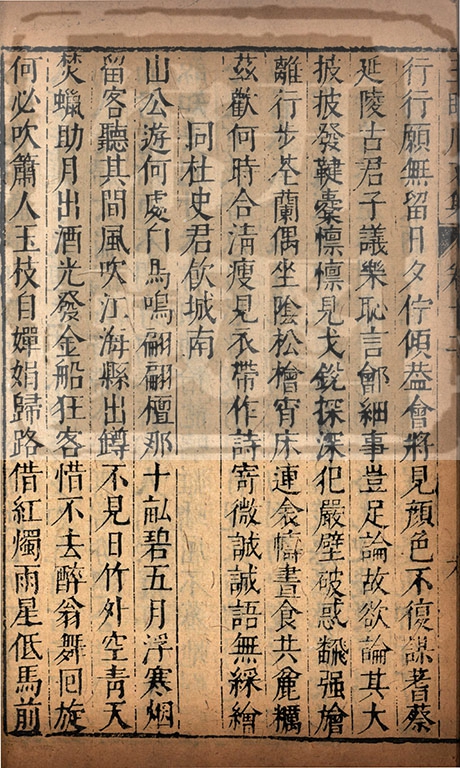 行行願無留日夕佇傾葢會將見顔色不復謀蓍蔡
延陵古君子議樂恥言鄶細事豈足論故欲論其大
披披發鞬櫜懍懍見戈銳探深犯嚴壁破惑飜强旝
離行步荃蘭偶坐陰松檜宵床連衾幬晝食共麄糲
茲歡何時合清瘦見衣帶作詩寄微誠誠語無綵繪
同杜史君飲城南
山公遊何處白馬鳴翩翩檀那十畝碧五月浮寒烟
留客聽其間風吹江海縣出鐏不見日竹外空青天
焚蠟助月出酒光發金船狂客惜不去醉翁舞回旋
何必吹簫人玉枝自嬋娟歸路借紅燭雨星低馬前